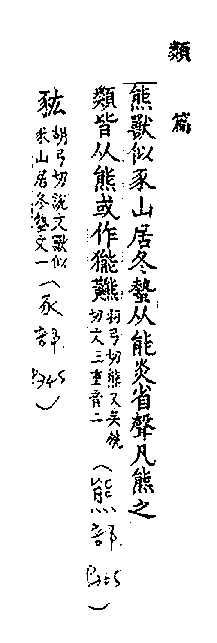 類篇
熊獸似豕山居冬蟄从能炎省聲凡熊之
類皆从熊或作
羽弓切熊又
切文三重音二
（熊部
胡弓切說文獸似
豕山居冬蟄文一
（豕部
P345）